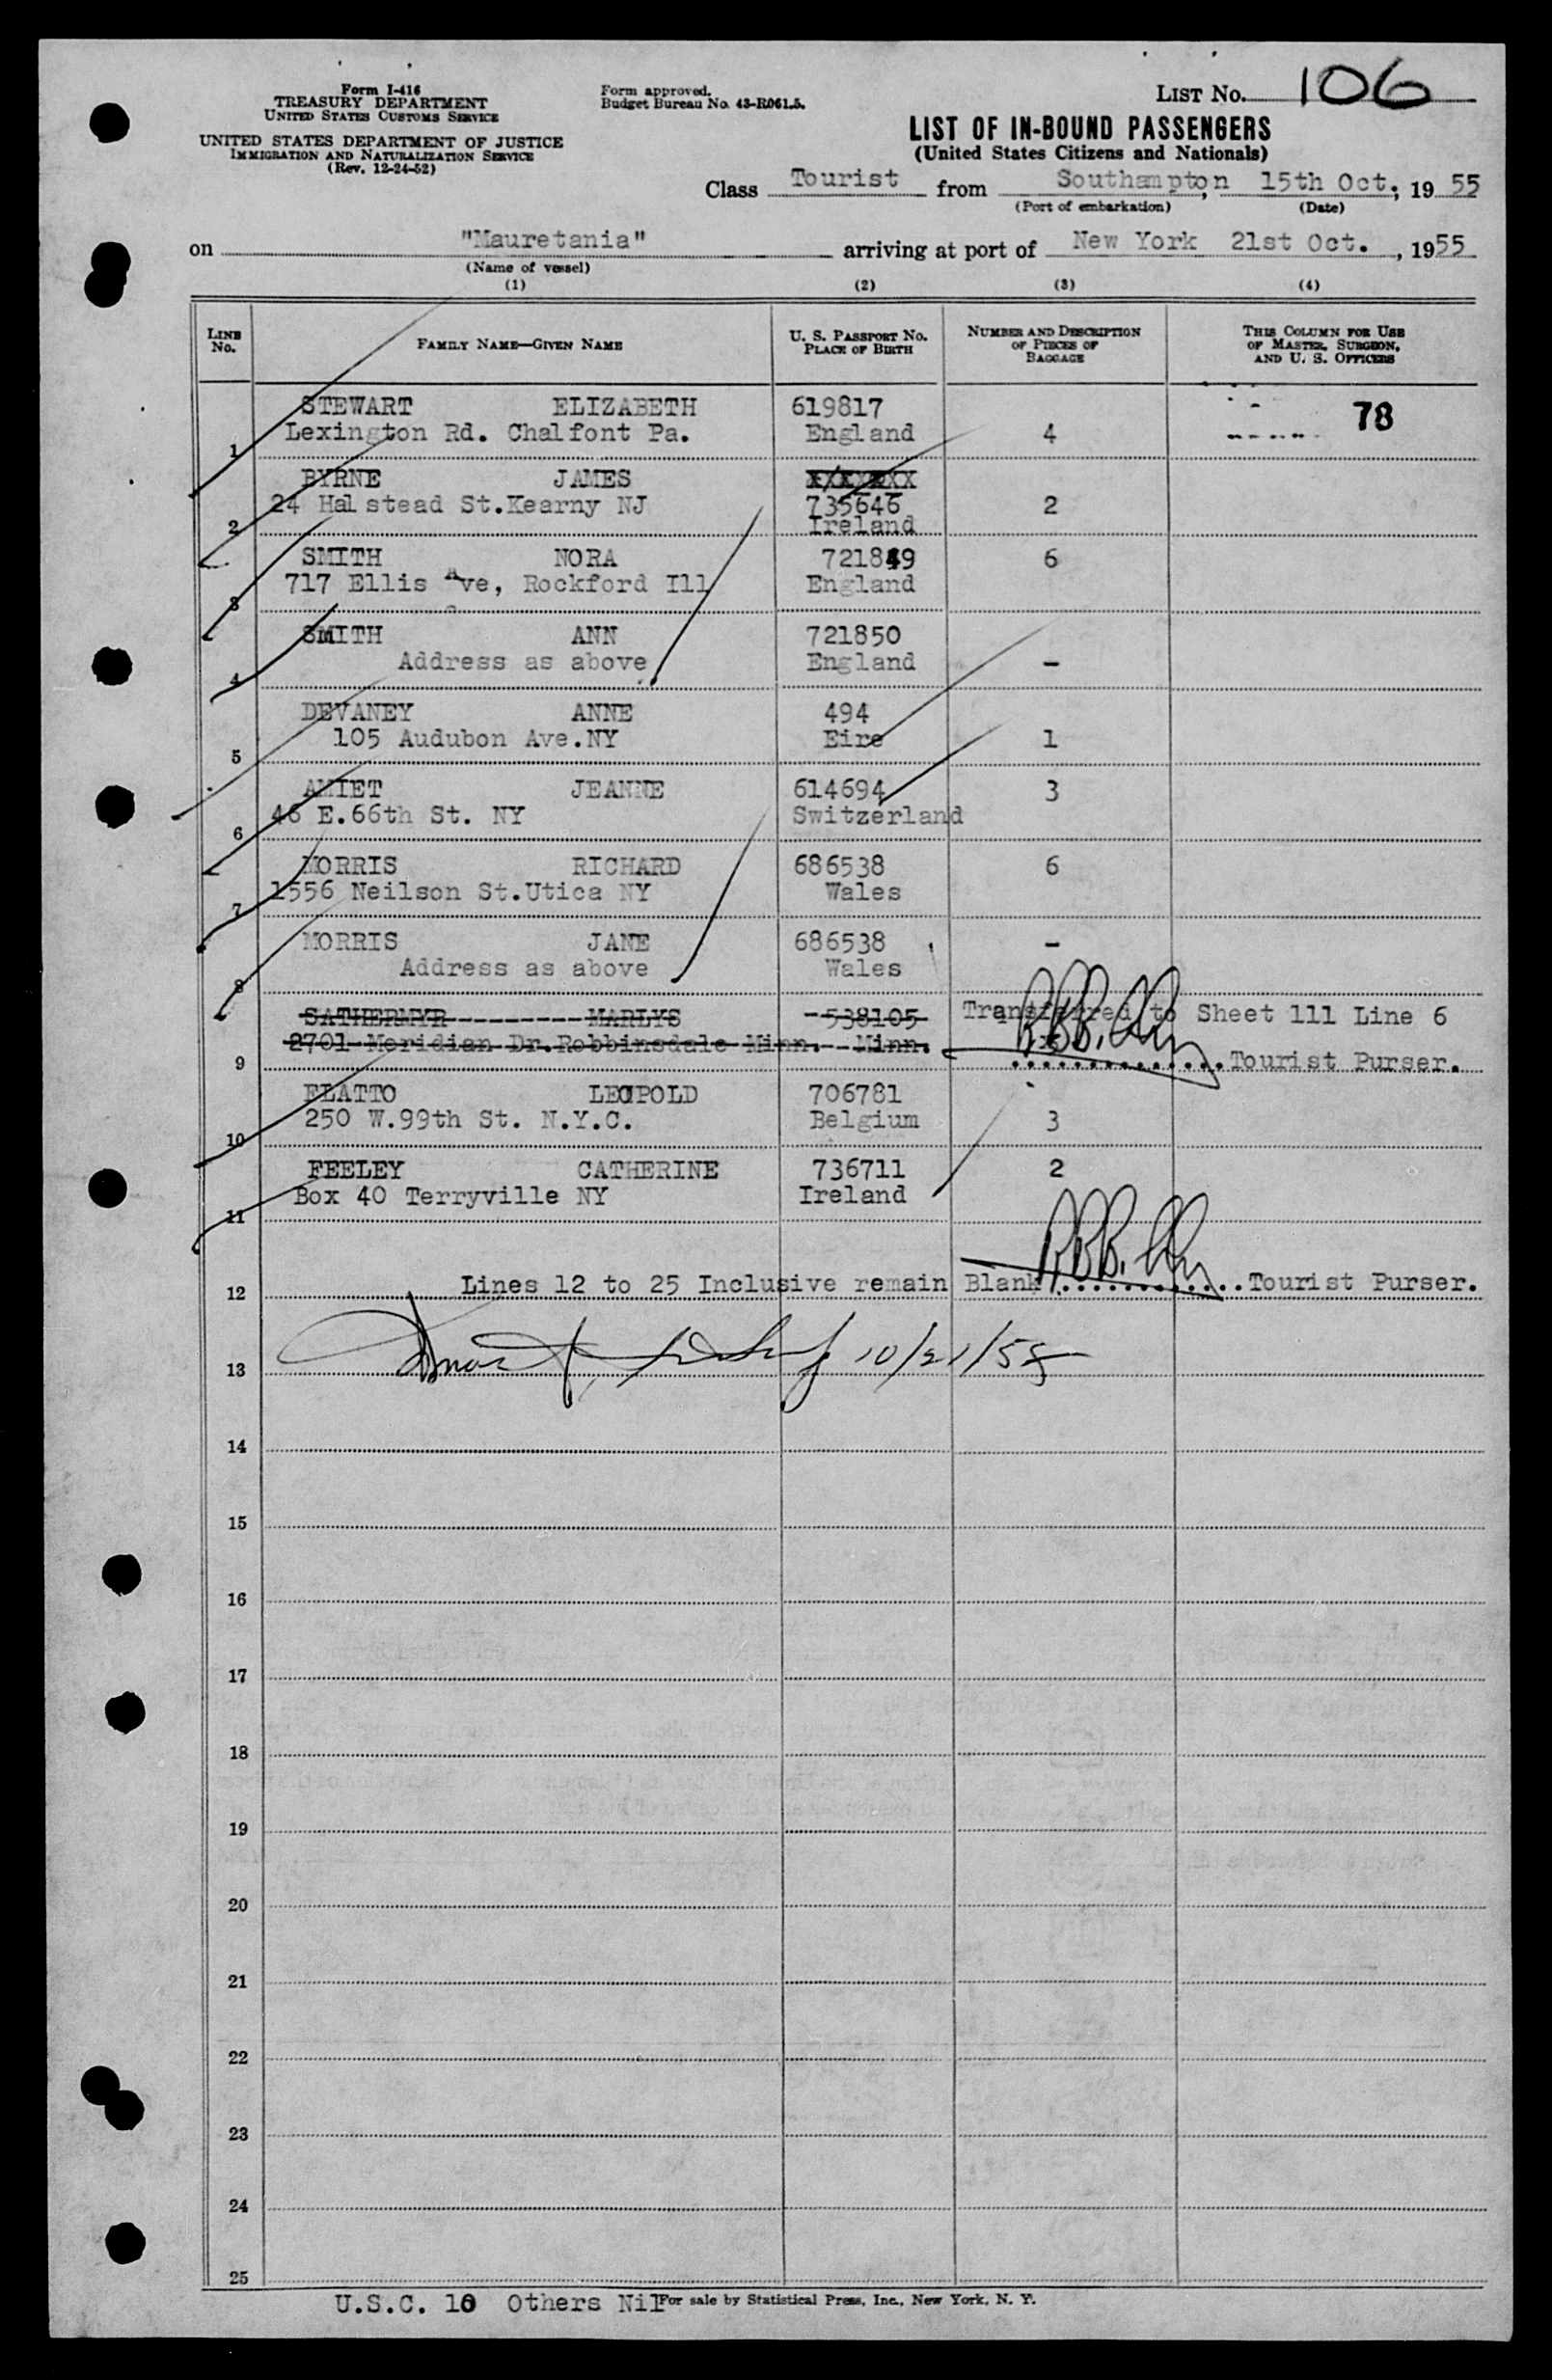 Form I-416
TREASURY DEPARTMENT
UNITED STATES CUSTOMS SERVICE
UNITED STATES DEPARTMENT OF JUSTICE
IMMIGRATION AND NATURALIZATION SERVICE
(Rev. 12-24-52)
Form approved.
Budget Bureau No. 43-R061.5.
LIST No. 106
LIST OF IN-BOUND PASSENGERS
(United States Citizens and Nationals)
Class Tourist from Southampton, 15th Oct., 1955
(Port of embarkation) (Date)
on "Mauretania" arriving at port of New York 21st Oct. , 1955
(Name of vessel)
(1) (2) (3) (4)
LINE No. FAMILY NAME—GIVEN NAME U. S. PASSPORT No. PLACE OF BIRTH NUMBER AND DESCRIPTION OF PIECES OF BAGGAGE THIS COLUMN FOR USE OF MASTER, SURGEON, AND U. S. OFFICERS
STEWART ELIZABETH 619817 78
1 Lexington Rd. Chalfont Pa. England 4
BYRNE JAMES
2 24 Halstead St.Kearny NJ 735646 2
Ireland
SMITH NORA 721849 6
3 717 Ellis Ave, Rockford Ill England
SMITH ANN 721850
4 Address as above England -
DEVANEY ANNE 494
5 105 Audubon Ave.NY Eire 1
AMIET JEANNE 614694 3
6 46 E.66th St. NY Switzerland
MORRIS RICHARD 686538 6
7 1556 Neilson St.Utica NY Wales
MORRIS JANE 686538 -
8 Address as above Wales
SATHERMYR--------MARLYS -538105- Transferred to Sheet 111 Line 6
9 2701 Meridian Dr.Robbinsdale Minn.--Minn. ..............Tourist Purser.
FLATTO LEOPOLD 706781
10 250 W.99th St. N.Y.C. Belgium 3
FEELEY CATHERINE 736711 2
11 Box 40 Terryville NY Ireland
12 Lines 12 to 25 Inclusive remain Blank ............Tourist Purser.
13 10/21/55
14
15
16
17
18
19
20
21
22
23
24
25
U.S.C. 10 Others Nil For sale by Statistical Press, Inc., New York, N. Y.